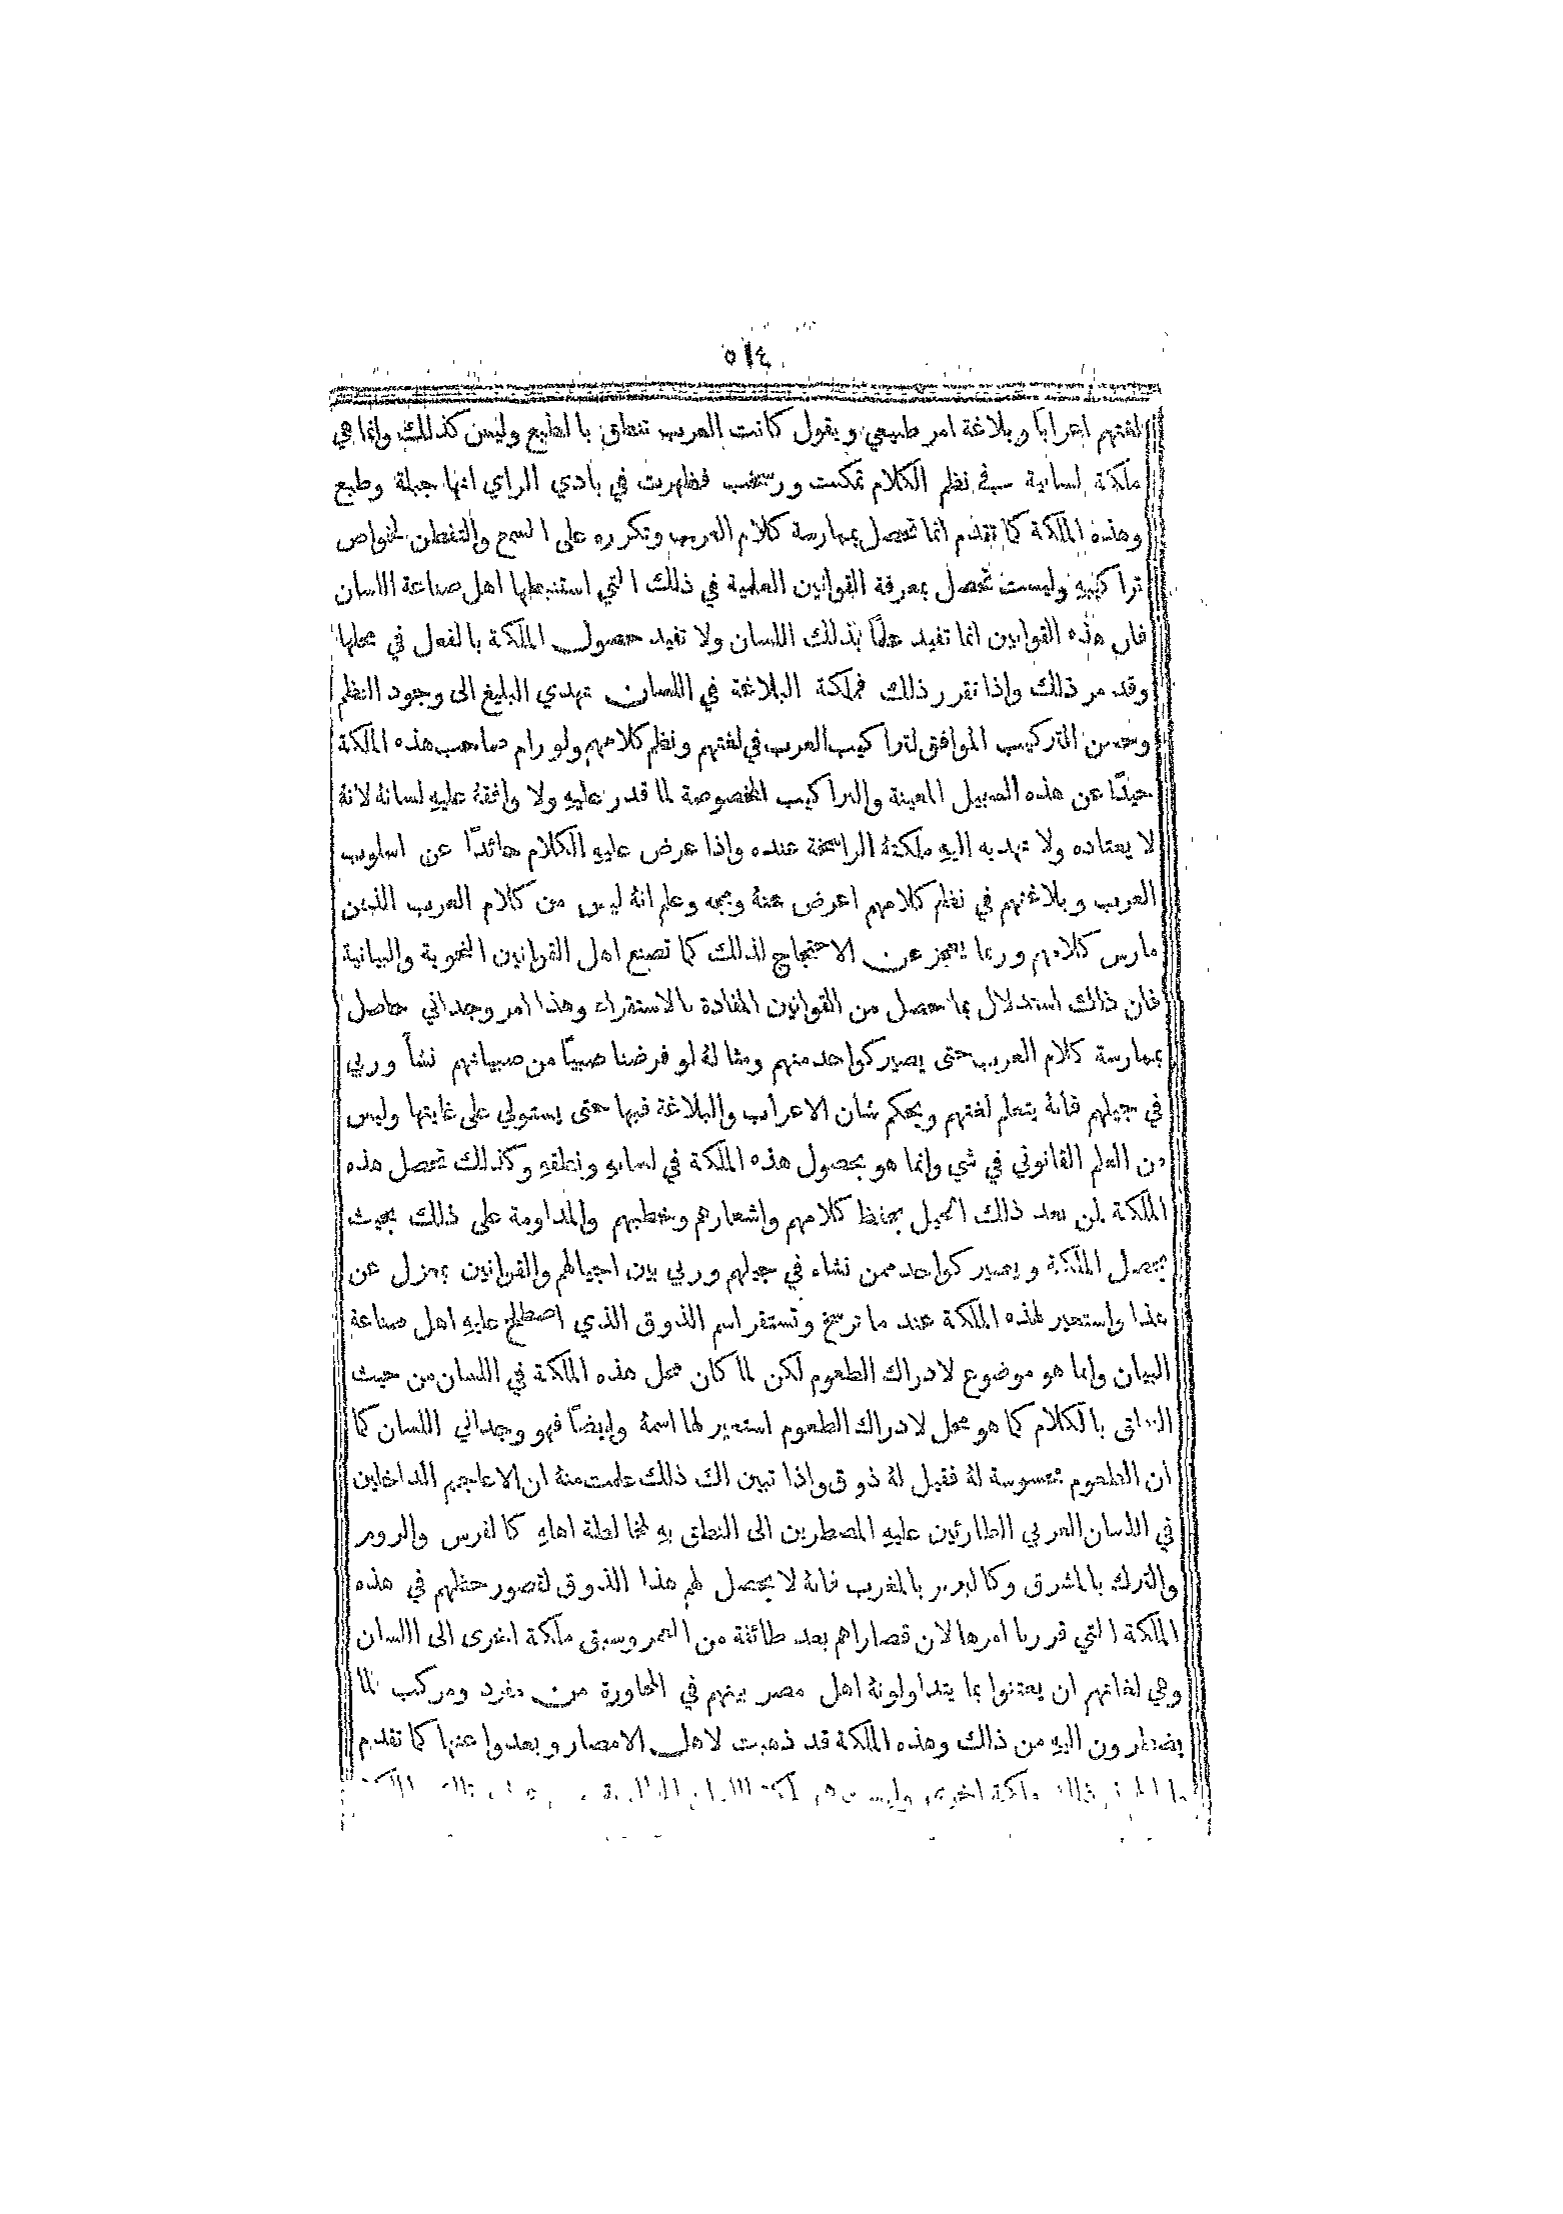 ٥١٤
لغتهم اعرابًا وبلاغة امر طبيعي ويقول كانت العرب تنطق بالطبع وليس كذلك وانما هي
ملكة لسانية في نظم الكلام تمكنت ورسخت فظهرت في بادي الراي انها جبلة وطبع
وهذه الملكة كما تقدم انما تحصل بممارسة كلام العرب وتكرره على السمع والتفطن لخواص
تراكيبهِ وليست تحصل بمعرفة القوانين العلمية في ذلك التي استنبطها اهل صناعة اللسان
فان هذه القوانين انما تفيد علمًا بذلك اللسان ولا تفيد حصول الملكة بالفعل في محلها
وقد مر ذلك واذا تقرر ذلك فملكة البلاغة في اللسان تهدي البليغ الى وجود النظم
وحسن التركيب الموافق لتراكيب العرب في لغتهم ونظم كلامهم ولو رام صاحب هذه الملكة
حيدًا عن هذه السبيل المعينة والتراكيب المخصوصة لما قدر عليهِ ولا وافقهُ عليهِ لسانهُ لانهُ
لا يعتاده ولا تهديه اليهِ ملكتهُ الراسخة عنده واذا عرض عليهِ الكلام حائدًا عن اسلوب
العرب وبلاغتهم في نظم كلامهم اعرض عنهُ ومجه وعلم انهُ ليس من كلام العرب الذين
مارس كلامهم وربما يعجز عن الاحتجاج لذلك كما تصنع اهل القوانين النحوية والبيانية
فان ذلك استدلال بما حصل من القوانين المفادة بالاستقراء وهذا امر وجداني حاصل
بممارسة كلام العرب حتى يصير كواحد منهم ومثالهُ لو فرضنا صبيًا من صبيانهم نشأ وربي
في جيلهم فانهُ يتعلم لغتهم ويحكم شان الاعراب والبلاغة فيها حتى يستولي على غايتها وليس
من العلم القانوني في شي وانما هو بحصول هذه الملكة في لسانهِ ونطقهِ وكذلك تحصل هذه
الملكة لمن بعد ذلك الجيل بحفظ كلامهم واشعارهم وخطبهم والمداومة على ذلك بحيث
يحصل الملكة ويصير كواحد ممن نشاء في جيلهم وربي بين اجيالهم والقوانين بمعزل عن
هذا واستعير لهذه الملكة عند ما ترسخ وتستقر اسم الذوق الذي اصطلح عليهِ اهل صناعة
البيان وانما هو موضوع لادراك الطعوم لكن لما كان محل هذه الملكة في اللسان من حيث
النطق بالكلام كما هو محل لادراك الطعوم استعير لها اسمهُ وايضًا فهو وجداني اللسان كما
ان الطعوم محسوسة لهُ فقيل لهُ ذوق واذا تبين لك ذلك علمت منهُ ان الاعاجم الداخلين
في اللسان العربي الطارئين عليهِ المضطرين الى النطق بهِ لمخالطة اهلهِ كالفرس والروم
والترك بالمشرق وكالبربر بالمغرب فانهُ لا يحصل لهم هذا الذوق لقصور حظهم في هذه
الملكة التي قررنا امرها لان قصاراهم بعد طائفة من العمر وسبق ملكة اخرى الى اللسان
وهي لغاتهم ان يعتنوا بما يتداولونهُ اهل مصر بينهم في المحاورة من مفرد ومركب لما
يضطرون اليهِ من ذلك وهذه الملكة قد ذهبت لاهل الامصار وبعدوا عنها كما تقدم
ملكة اخرى وليست هي